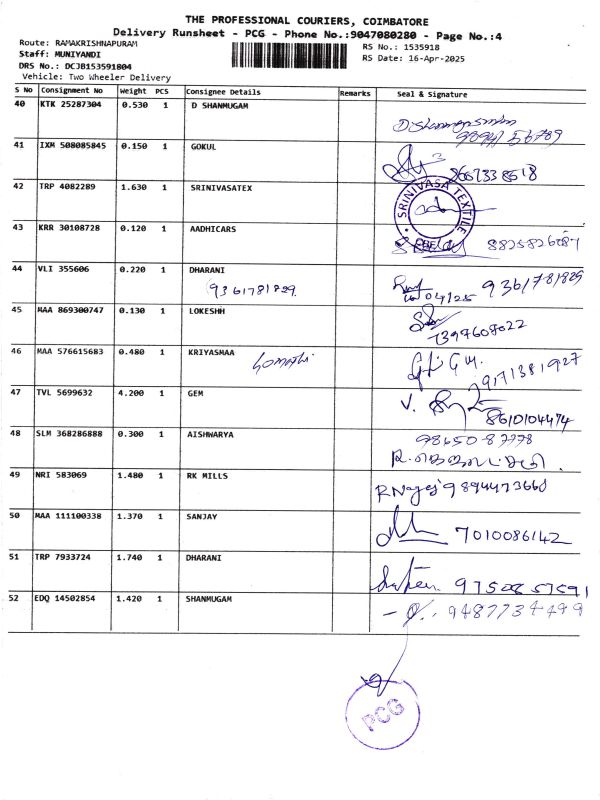 THE PROFESSIONAL COURIERS, COIMBATORE
Delivery Runsheet - PCG - Phone No.:9047080280 - Page No.:4
Route: RAMAKRISHNAPURAM
RS No.: 1535918
Staff: MUNIYANDI
RS Date: 16-Apr-2025
DRS No.: DCJB153591804
Vehicle: Two Wheeler Delivery
S No Consignment No Weight PCS Consignee Details Remarks Seal & Signature
40 KTK 25287304 0.530 1 D SHANMUGAM
D Shanmugam
41 IXM 508085845 0.150 1 GOKUL
42 TRP 4082289 1.630 1 SRINIVASATEX
SRINIVASA TEXTILE
43 KRR 30108728 0.120 1 AADHICARS
44 VLI 355606 0.220 1 DHARANI
9361781829
9361781829
45 MAA 869300747 0.130 1 LOKESHH
7397608022
46 MAA 576615683 0.480 1 KRIYASMAA
Gomathi
9171381927
47 TVL 5699632 4.200 1 GEM
V.
8610104474
48 SLM 368286888 0.300 1 AISHWARYA
49 NRI 583069 1.480 1 RK MILLS
9894473668
50 MAA 111100338 1.370 1 SANJAY
7010086142
51 TRP 7933724 1.740 1 DHARANI
52 EDQ 14502854 1.420 1 SHANMUGAM
9487734499
PCG